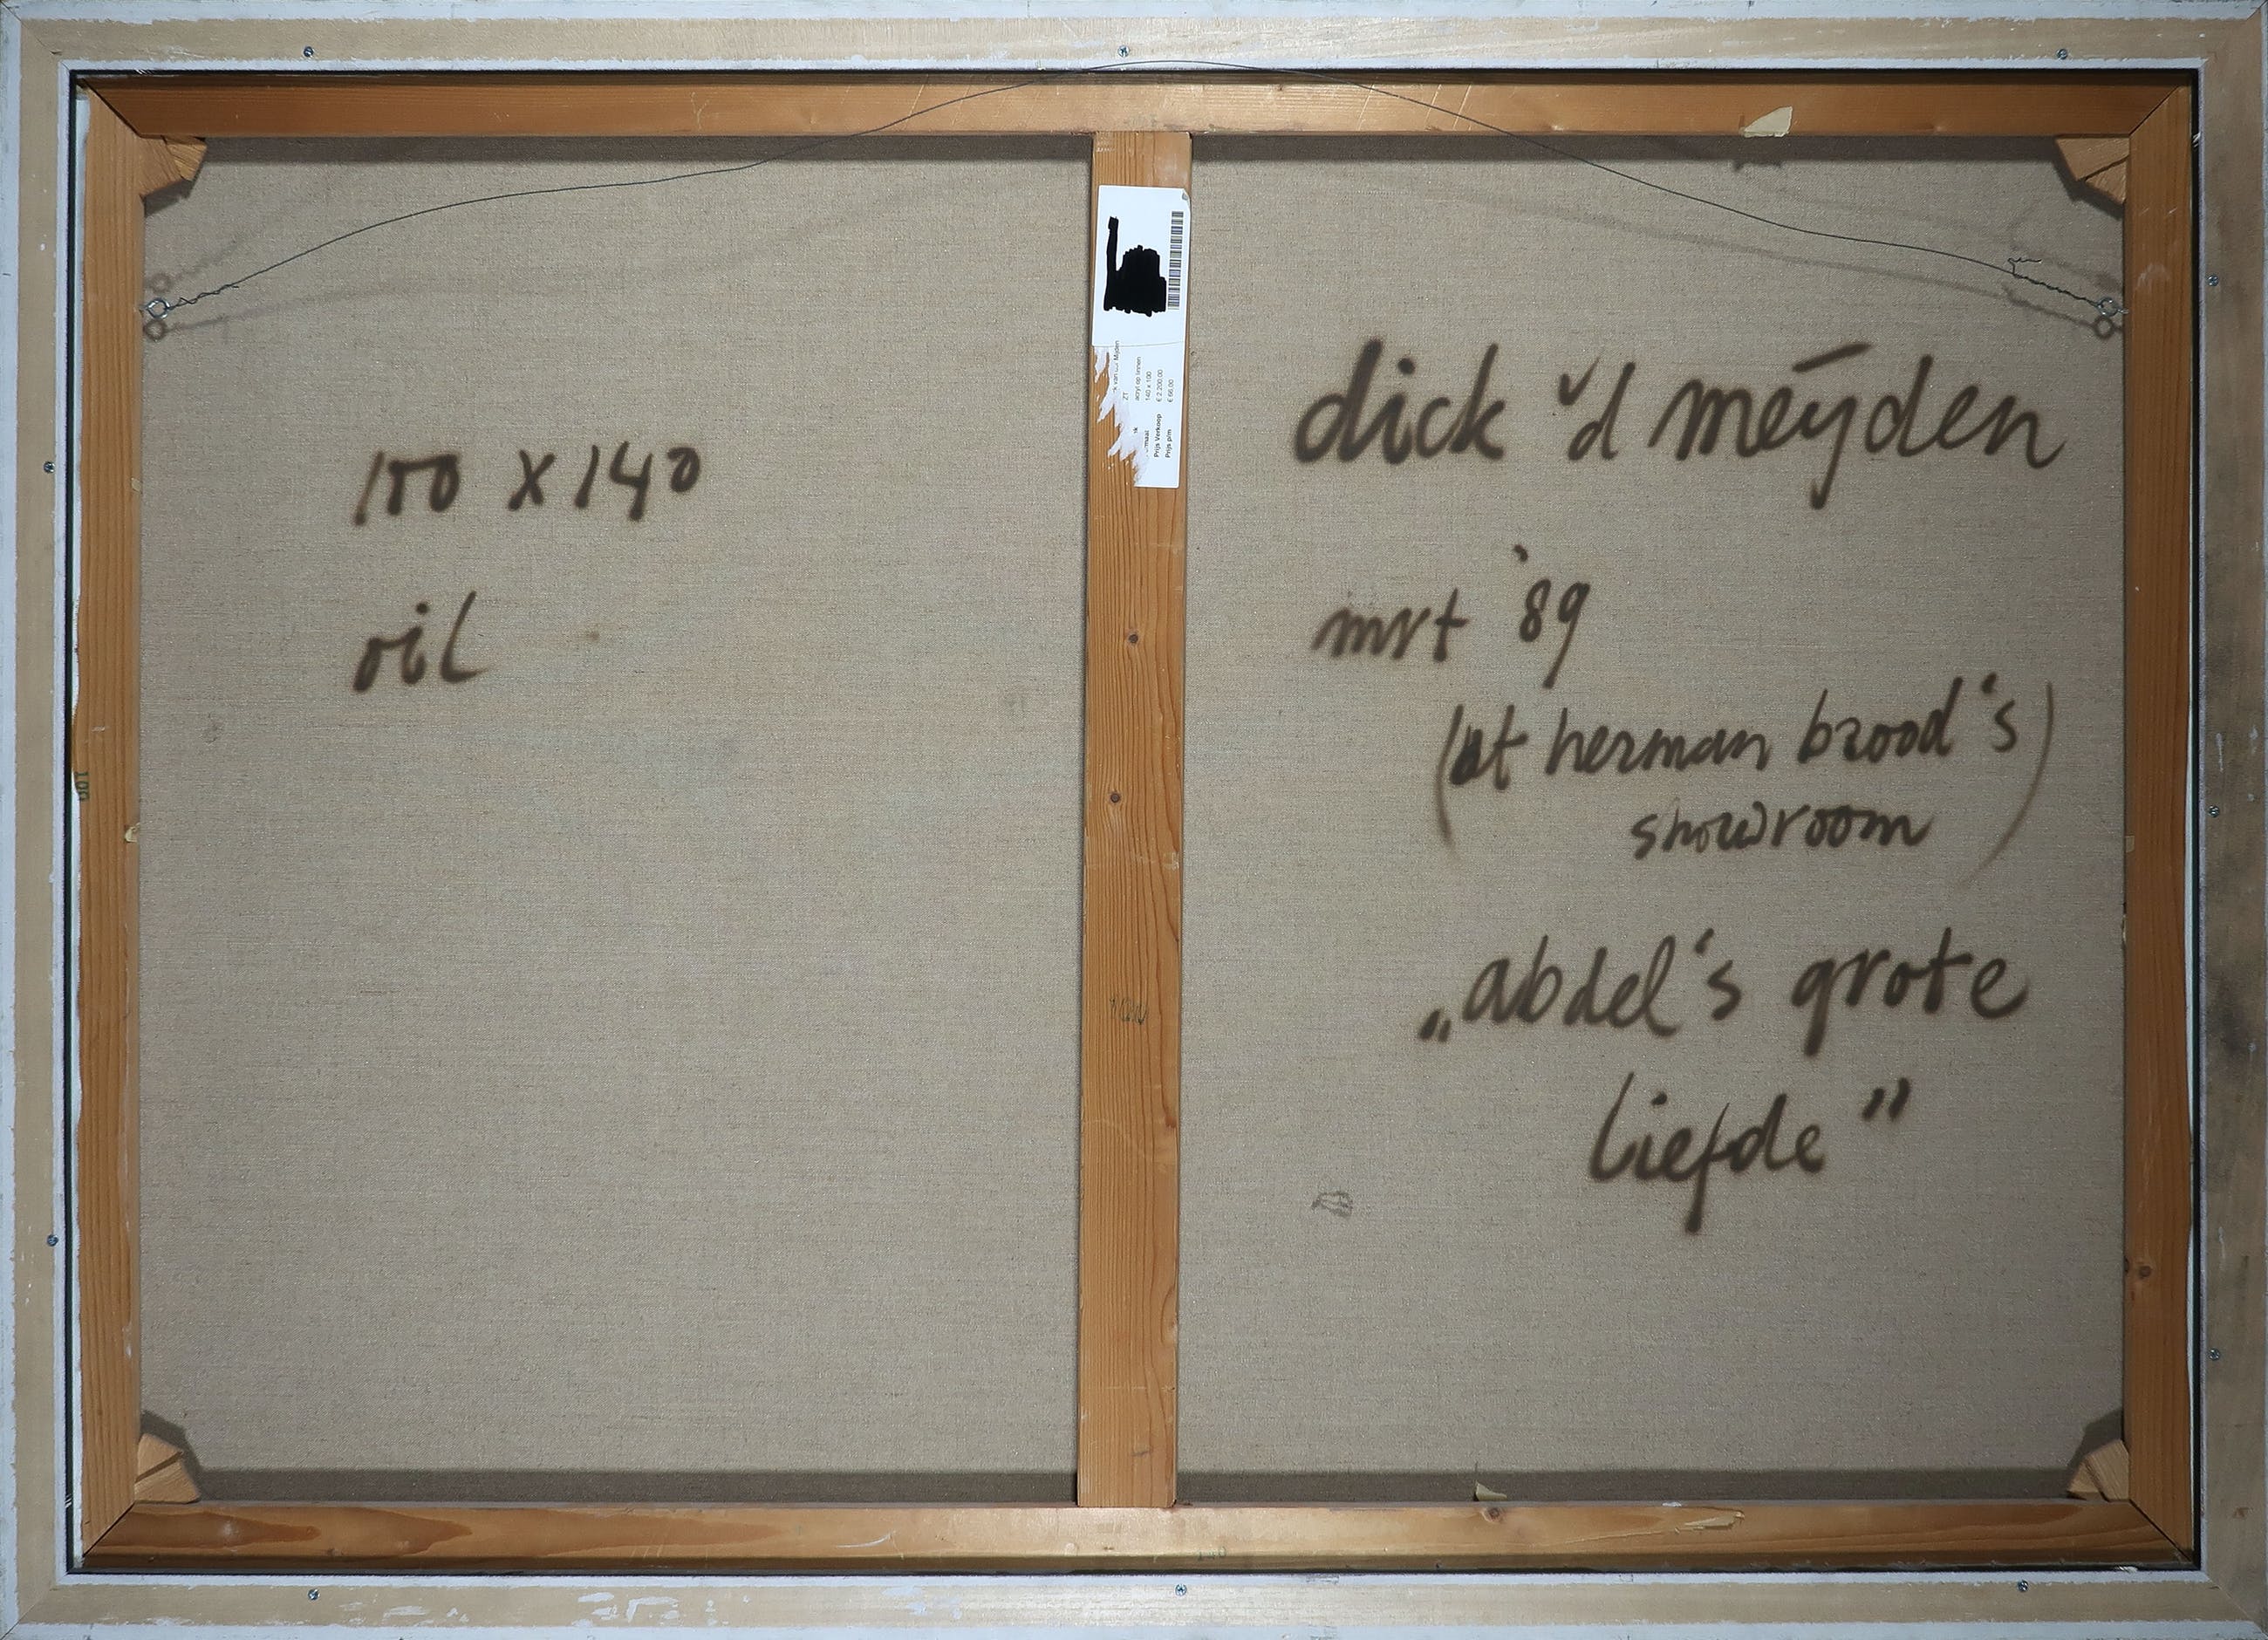 100 x 140
oil
dick v/d meÿden
mrt '89
(at herman brood's)
showroom
„abdel's grote
liefde”
Mijden
ZT
acryl op linnen
140 x 100
Prijs Verkoop € 2.200,00
Prijs p/m € 66,00
100
140